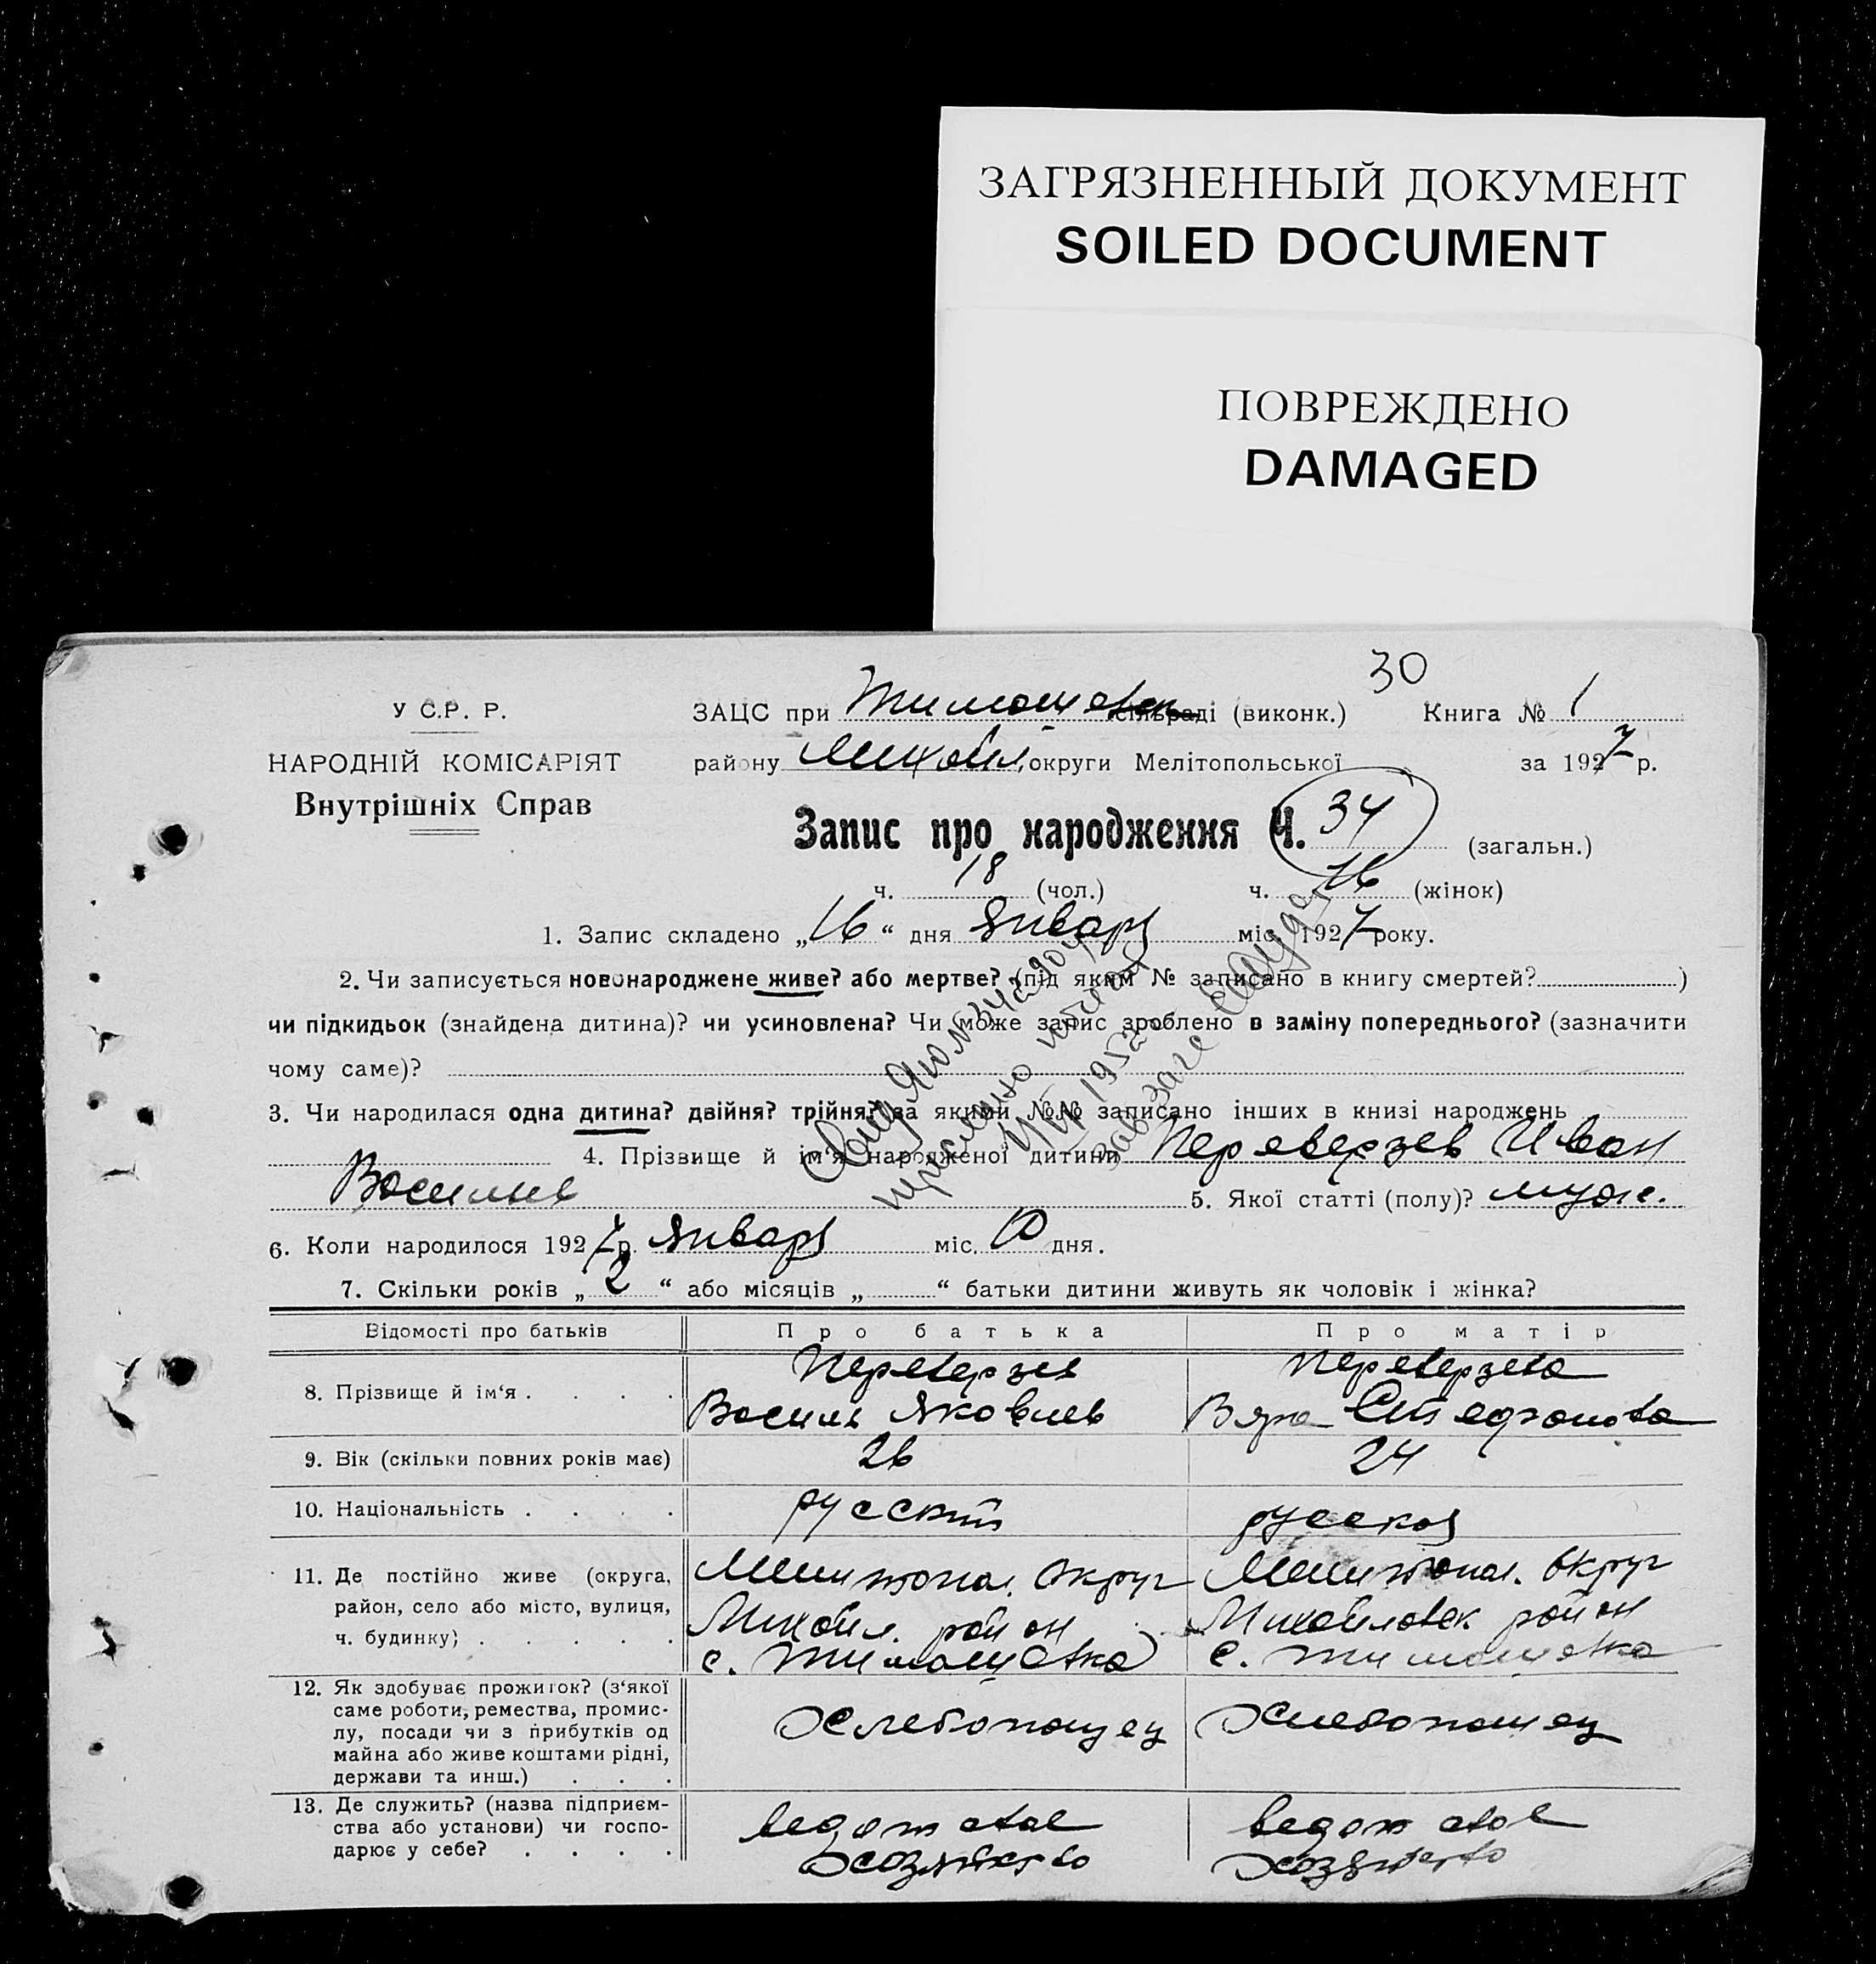 ЗАГРЯЗНЕННЫЙ ДОКУМЕНТ
SOILED DOCUMENT
ПОВРЕЖДЕНО
DAMAGED
30
У С.Р. Р.
НАРОДНІЙ КОМІСАРІЯТ
Внутрішніх Справ
ЗАЦС при Тимошовск сільраді (виконк.) Книга № 1
району Михайл. округи Мелітопольської за 1927 р.
Запис про народження Ч. 34 (загальн.)
ч. 18 (чол.) ч. 16 (жінок)
1. Запис складено „16“ дня Января міс. 1927 року.
2. Чи записується новонароджене живе? або мертве? (під яким № записано в книгу смертей? )
чи підкидьок (знайдена дитина)? чи усиновлена? Чи може запис зроблено в заміну попереднього? (зазначити
чому саме)?
3. Чи народилася одна дитина? двійня? трійня? за якими №№ записано інших в книзі народжень
4. Прізвище й ім‘я народженої дитини Переверзев Иван
Васильев 5. Якої статті (полу)? муж.
6. Коли народилося 1927 р. Января міс. 10 дня.
7. Скільки років „2“ або місяців „ “ батьки дитини живуть як чоловік і жінка?
Відомості про батьків Про батька Про матір
8. Прізвище й ім‘я . . . . Переверзев Василь Яковлев Переверзева Вяра Стефанова
9. Вік (скільки повних років має) 26 24
10. Національність . . . . русский русская
11. Де постійно живе (округа, Мелитопол. Округ Мелитопол. Округ
район, село або місто, вулиця, Михайл. район Михайловск. район
ч. будинку) . . . . . с. Тимошовка с. Тимошовка
12. Як здобуває прожиток? (з‘якої
саме роботи, ремества, промис-
лу, посади чи з прибутків од Хлебопашец Хлебопашец
майна або живе коштами рідні,
держави та инш.) . . .
13. Де служить? (назва підприєм-
ства або установи) чи госпо- ведет свое ведет свое
дарює у себе? . . . . хозяйство хозяйство